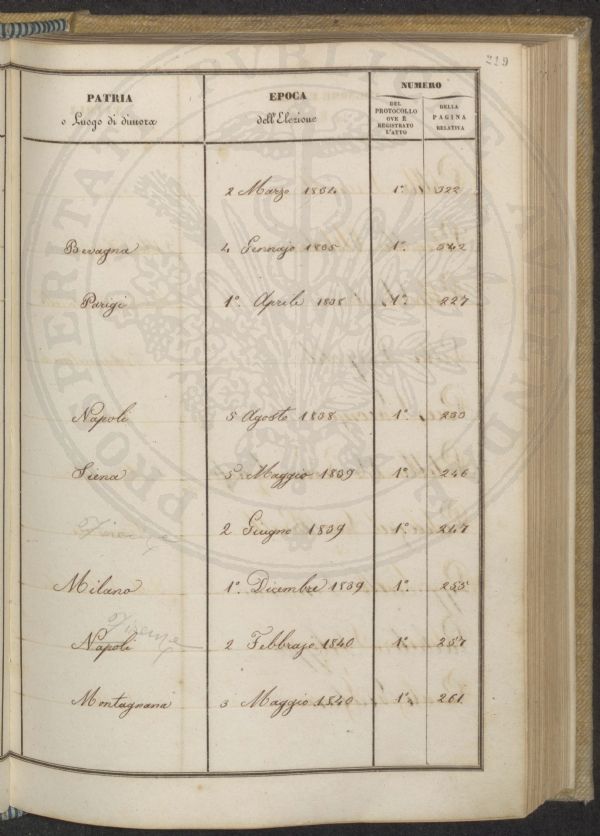 229
PATRIA
o Luogo di dimora
EPOCA
dell'Elezione
NUMERO
DEL
PROTOCOLLO
OVE È
REGISTRATO
L'ATTO
DELLA
PAGINA
RELATIVA
2 Marzo 1834 1º. 322
Bevagna 4 Gennajo 1835 1º. 342
Parigi 1º. Aprile 1838 1º. 227
Napoli 5 Agosto 1838 1º. 230
Siena 5 Maggio 1839 1º. 246
Firenze 2 Giugno 1839 1º. 247
Milano 1º. Dicembre 1839 1º. 255
Firenze
Napoli 2 Febbrajo 1840 1º. 257
Montagnana 3 Maggio 1840 1º. 261